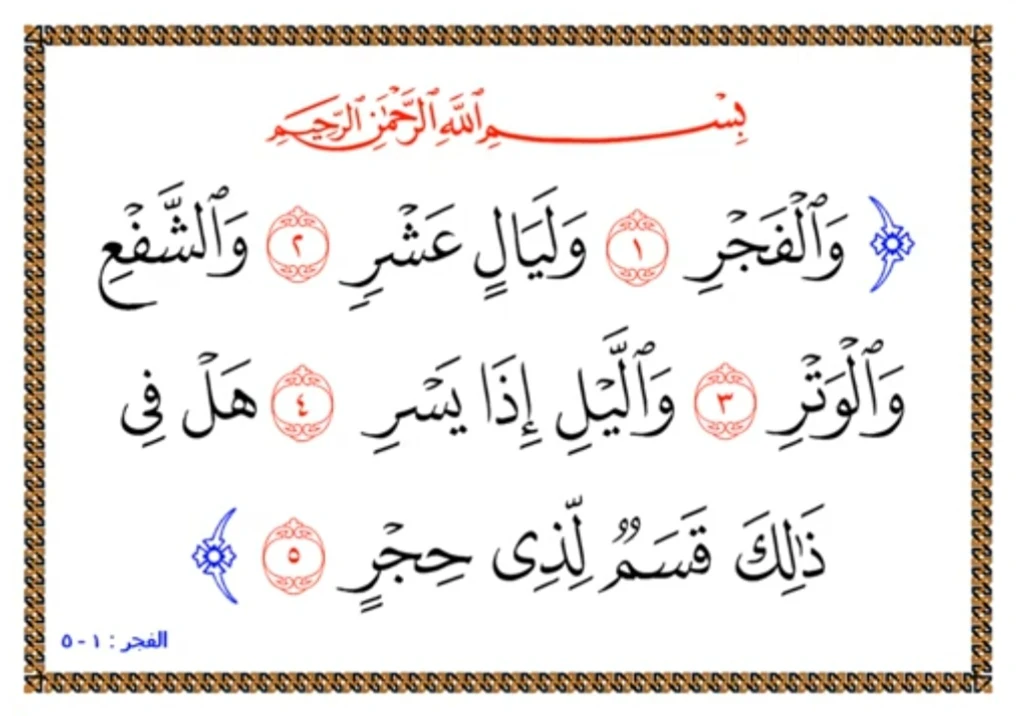 بِسْمِ ٱللَّهِ ٱلرَّحْمَٰنِ ٱلرَّحِيمِ
﴿ وَٱلْفَجْرِ ١ وَلَيَالٍ عَشْرٍ ٢ وَٱلشَّفْعِ
وَٱلْوَتْرِ ٣ وَٱلَّيْلِ إِذَا يَسْرِ ٤ هَلْ فِى
ذَٰلِكَ قَسَمٌ لِّذِى حِجْرٍ ٥ ﴾
الفجر : ١ - ٥